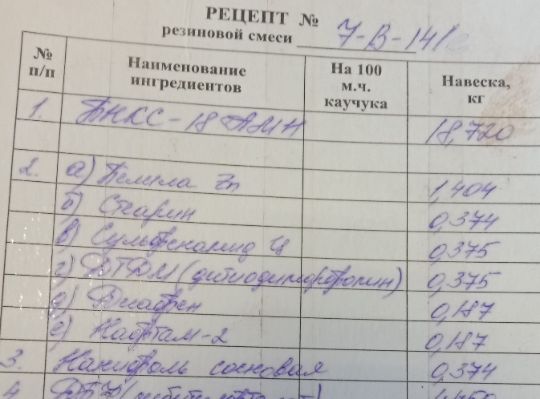 РЕЦЕПТ №
резиновой смеси 7-В-14
№ п/п Наименование ингредиентов На 100 м.ч. каучука Навеска, кг
1. БНКС-18 АМН 18,720
2. а) Белила Zn 1,404
б) Стеарин 0,374
в) Сульфенамид Ц 0,375
г) ДТДМ (дитиодиморфолин) 0,375
д) Диафен 0,187
е) Нафтам-2 0,187
3. Канифоль сосновая 0,374
4.